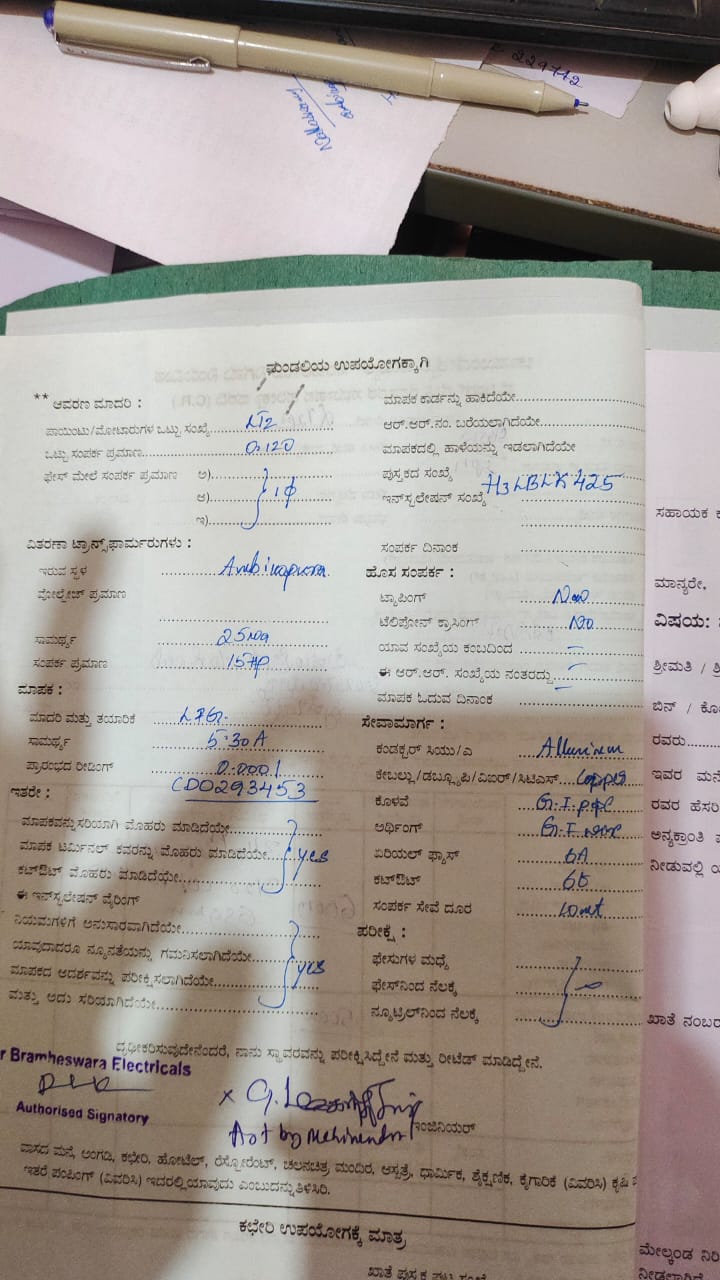 229712
ಮಂಡಲಿಯ ಉಪಯೋಗಕ್ಕಾಗಿ
** ಆವರಣ ಮಾದರಿ :
ಪಾಯಿಂಟು/ಮೋಟಾರುಗಳ ಒಟ್ಟು ಸಂಖ್ಯೆ LT2
ಒಟ್ಟು ಸಂಪರ್ಕ ಪ್ರಮಾಣ 0.120
ಫೇಸ್ ಮೇಲೆ ಸಂಪರ್ಕ ಪ್ರಮಾಣ ಅ)
ಆ) 1ϕ
ಇ)
ವಿತರಣಾ ಟ್ರಾನ್ಸ್‌ಫಾರ್ಮರುಗಳು :
ಇರುವ ಸ್ಥಳ
ವೋಲ್ಟೇಜ್ ಪ್ರಮಾಣ
ಸಾಮರ್ಥ್ಯ
ಸಂಪರ್ಕ ಪ್ರಮಾಣ 15HP
ಮಾಪಕ :
ಮಾದರಿ ಮತ್ತು ತಯಾರಿಕೆ
ಸಾಮರ್ಥ್ಯ 5-30A
ಪ್ರಾರಂಭದ ರೀಡಿಂಗ್ 0.0001
CD0293453
ಇತರೇ :
ಮಾಪಕವನ್ನು ಸರಿಯಾಗಿ ಮೊಹರು ಮಾಡಿದೆಯೇ
ಮಾಪಕ ಟರ್ಮಿನಲ್ ಕವರನ್ನು ಮೊಹರು ಮಾಡಿದೆಯೇ yes
ಕಟ್‌ಔಟ್ ಮೊಹರು ಮಾಡಿದೆಯೇ
ಈ ಇನ್‌ಸ್ಟಲೇಷನ್ ವೈರಿಂಗ್
ನಿಯಮಗಳಿಗೆ ಅನುಸಾರವಾಗಿದೆಯೇ
ಯಾವುದಾದರೂ ನ್ಯೂನತೆಯನ್ನು ಗಮನಿಸಲಾಗಿದೆಯೇ
ಮಾಪಕದ ಆದರ್ಶವನ್ನು ಪರೀಕ್ಷಿಸಲಾಗಿದೆಯೇ yes
ಮತ್ತು ಅದು ಸರಿಯಾಗಿದೆಯೇ
ಮಾಪಕ ಕಾರ್ಡನ್ನು ಹಾಕಿದೆಯೇ
ಆರ್.ಆರ್.ನಂ. ಬರೆಯಲಾಗಿದೆಯೇ
ಮಾಪಕದಲ್ಲಿ ಹಾಳೆಯನ್ನು ಇಡಲಾಗಿದೆಯೇ
ಪುಸ್ತಕದ ಸಂಖ್ಯೆ
ಇನ್‌ಸ್ಟಲೇಷನ್ ಸಂಖ್ಯೆ H3LBLK425
ಸಂಪರ್ಕ ದಿನಾಂಕ
ಹೊಸ ಸಂಪರ್ಕ :
ಟ್ಯಾಪಿಂಗ್
ಟೆಲಿಫೋನ್ ಕ್ರಾಸಿಂಗ್ No
ಯಾವ ಸಂಖ್ಯೆಯ ಕಂಬದಿಂದ –
ಈ ಆರ್.ಆರ್. ಸಂಖ್ಯೆಯ ನಂತರದ್ದು –
ಮಾಪಕ ಓದುವ ದಿನಾಂಕ
ಸೇವಾಮಾರ್ಗ :
ಕಂಡಕ್ಟರ್ ಸಿಯು/ಎ
ಕೇಬಲ್ಲು/ಡಬ್ಲ್ಯೂಪಿ/ವಿಐಆರ್/ಸಿಟಿಎಸ್
ಕೊಳವೆ G.I. pipe
ಅರ್ಥಿಂಗ್ G.I.
ಏರಿಯಲ್ ಫ್ಯೂಸ್
ಕಟ್‌ಔಟ್
ಸಂಪರ್ಕ ಸೇವೆ ದೂರ 10mt
ಪರೀಕ್ಷೆ :
ಫೇಸುಗಳ ಮಧ್ಯೆ
ಫೇಸ್‌ನಿಂದ ನೆಲಕ್ಕೆ
ನ್ಯೂಟ್ರಲ್‌ನಿಂದ ನೆಲಕ್ಕೆ
ದೃಢೀಕರಿಸುವುದೇನೆಂದರೆ, ನಾನು ಸ್ಥಾವರವನ್ನು ಪರೀಕ್ಷಿಸಿದ್ದೇನೆ ಮತ್ತು ರೀಟೆಡ್ ಮಾಡಿದ್ದೇನೆ.
r Bramheswara Electricals
Authorised Signatory
ಇಂಜಿನಿಯರ್
ವಾಸದ ಮನೆ, ಅಂಗಡಿ, ಕಛೇರಿ, ಹೋಟೆಲ್, ರೆಸ್ಟೋರೆಂಟ್, ಚಲನಚಿತ್ರ ಮಂದಿರ, ಆಸ್ಪತ್ರೆ, ಧಾರ್ಮಿಕ, ಶೈಕ್ಷಣಿಕ, ಕೈಗಾರಿಕೆ (ವಿವರಿಸಿ) ಕೃಷಿ
ಇತರೆ ಪಂಪಿಂಗ್ (ವಿವರಿಸಿ) ಇದರಲ್ಲಿ ಯಾವುದು ಎಂಬುದನ್ನು ತಿಳಿಸಿರಿ.
ಕಛೇರಿ ಉಪಯೋಗಕ್ಕೆ ಮಾತ್ರ
ಖಾತೆ ಪುಸ್ತಕ ಪುಟ ಸಂಖ್ಯೆ
ಸಹಾಯಕ
ಮಾನ್ಯರೇ,
ವಿಷಯ:
ಶ್ರೀಮತಿ /
ಬಿನ್ / ಕೋ
ರವರು
ಇವರ ಮನೆ
ರವರ ಹೆಸರಿ
ಅನ್ಯಕ್ರಾಂತಿ
ನೀಡುವಲ್ಲಿ
ಖಾತೆ ನಂಬರ
ಮೇಲ್ಕಂಡ
ನೀಡಲಾಗಿದೆ